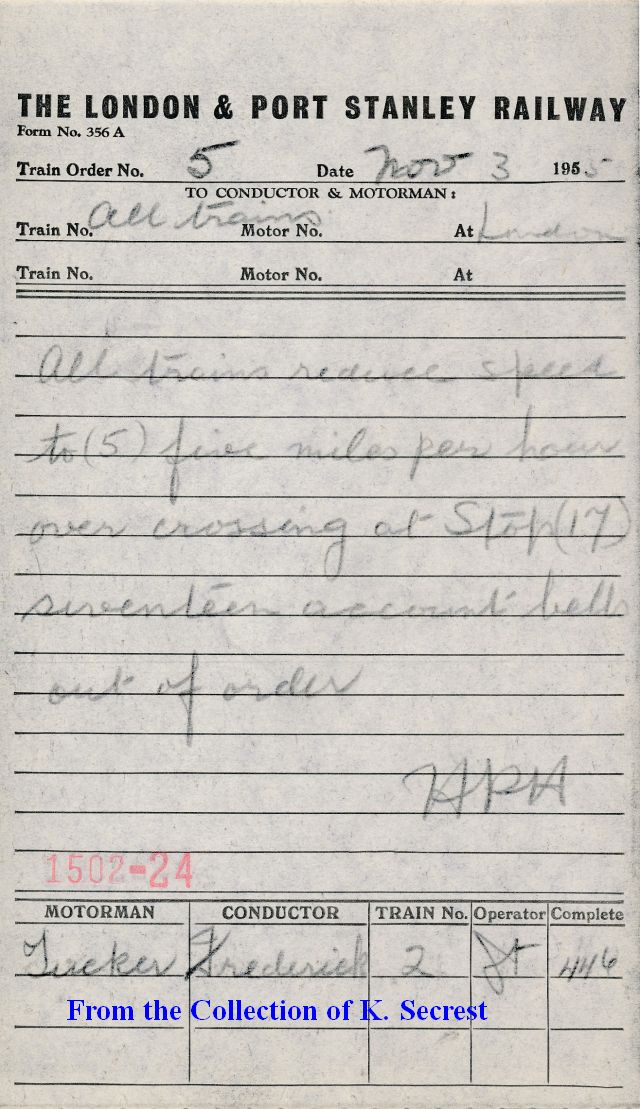 THE LONDON & PORT STANLEY RAILWAY
Form No. 356 A
Train Order No. 5 Date Nov 3 1955
TO CONDUCTOR & MOTORMAN:
Train No. All trains Motor No. At London
Train No. Motor No. At
All trains reduce speed
to (5) five miles per hour
over crossing at Stop (17)
seventeen account bells
out of order
HPH
1502-24
MOTORMAN CONDUCTOR TRAIN No. Operator Complete
Tucker Frederick 2 446
From the Collection of K. Secrest